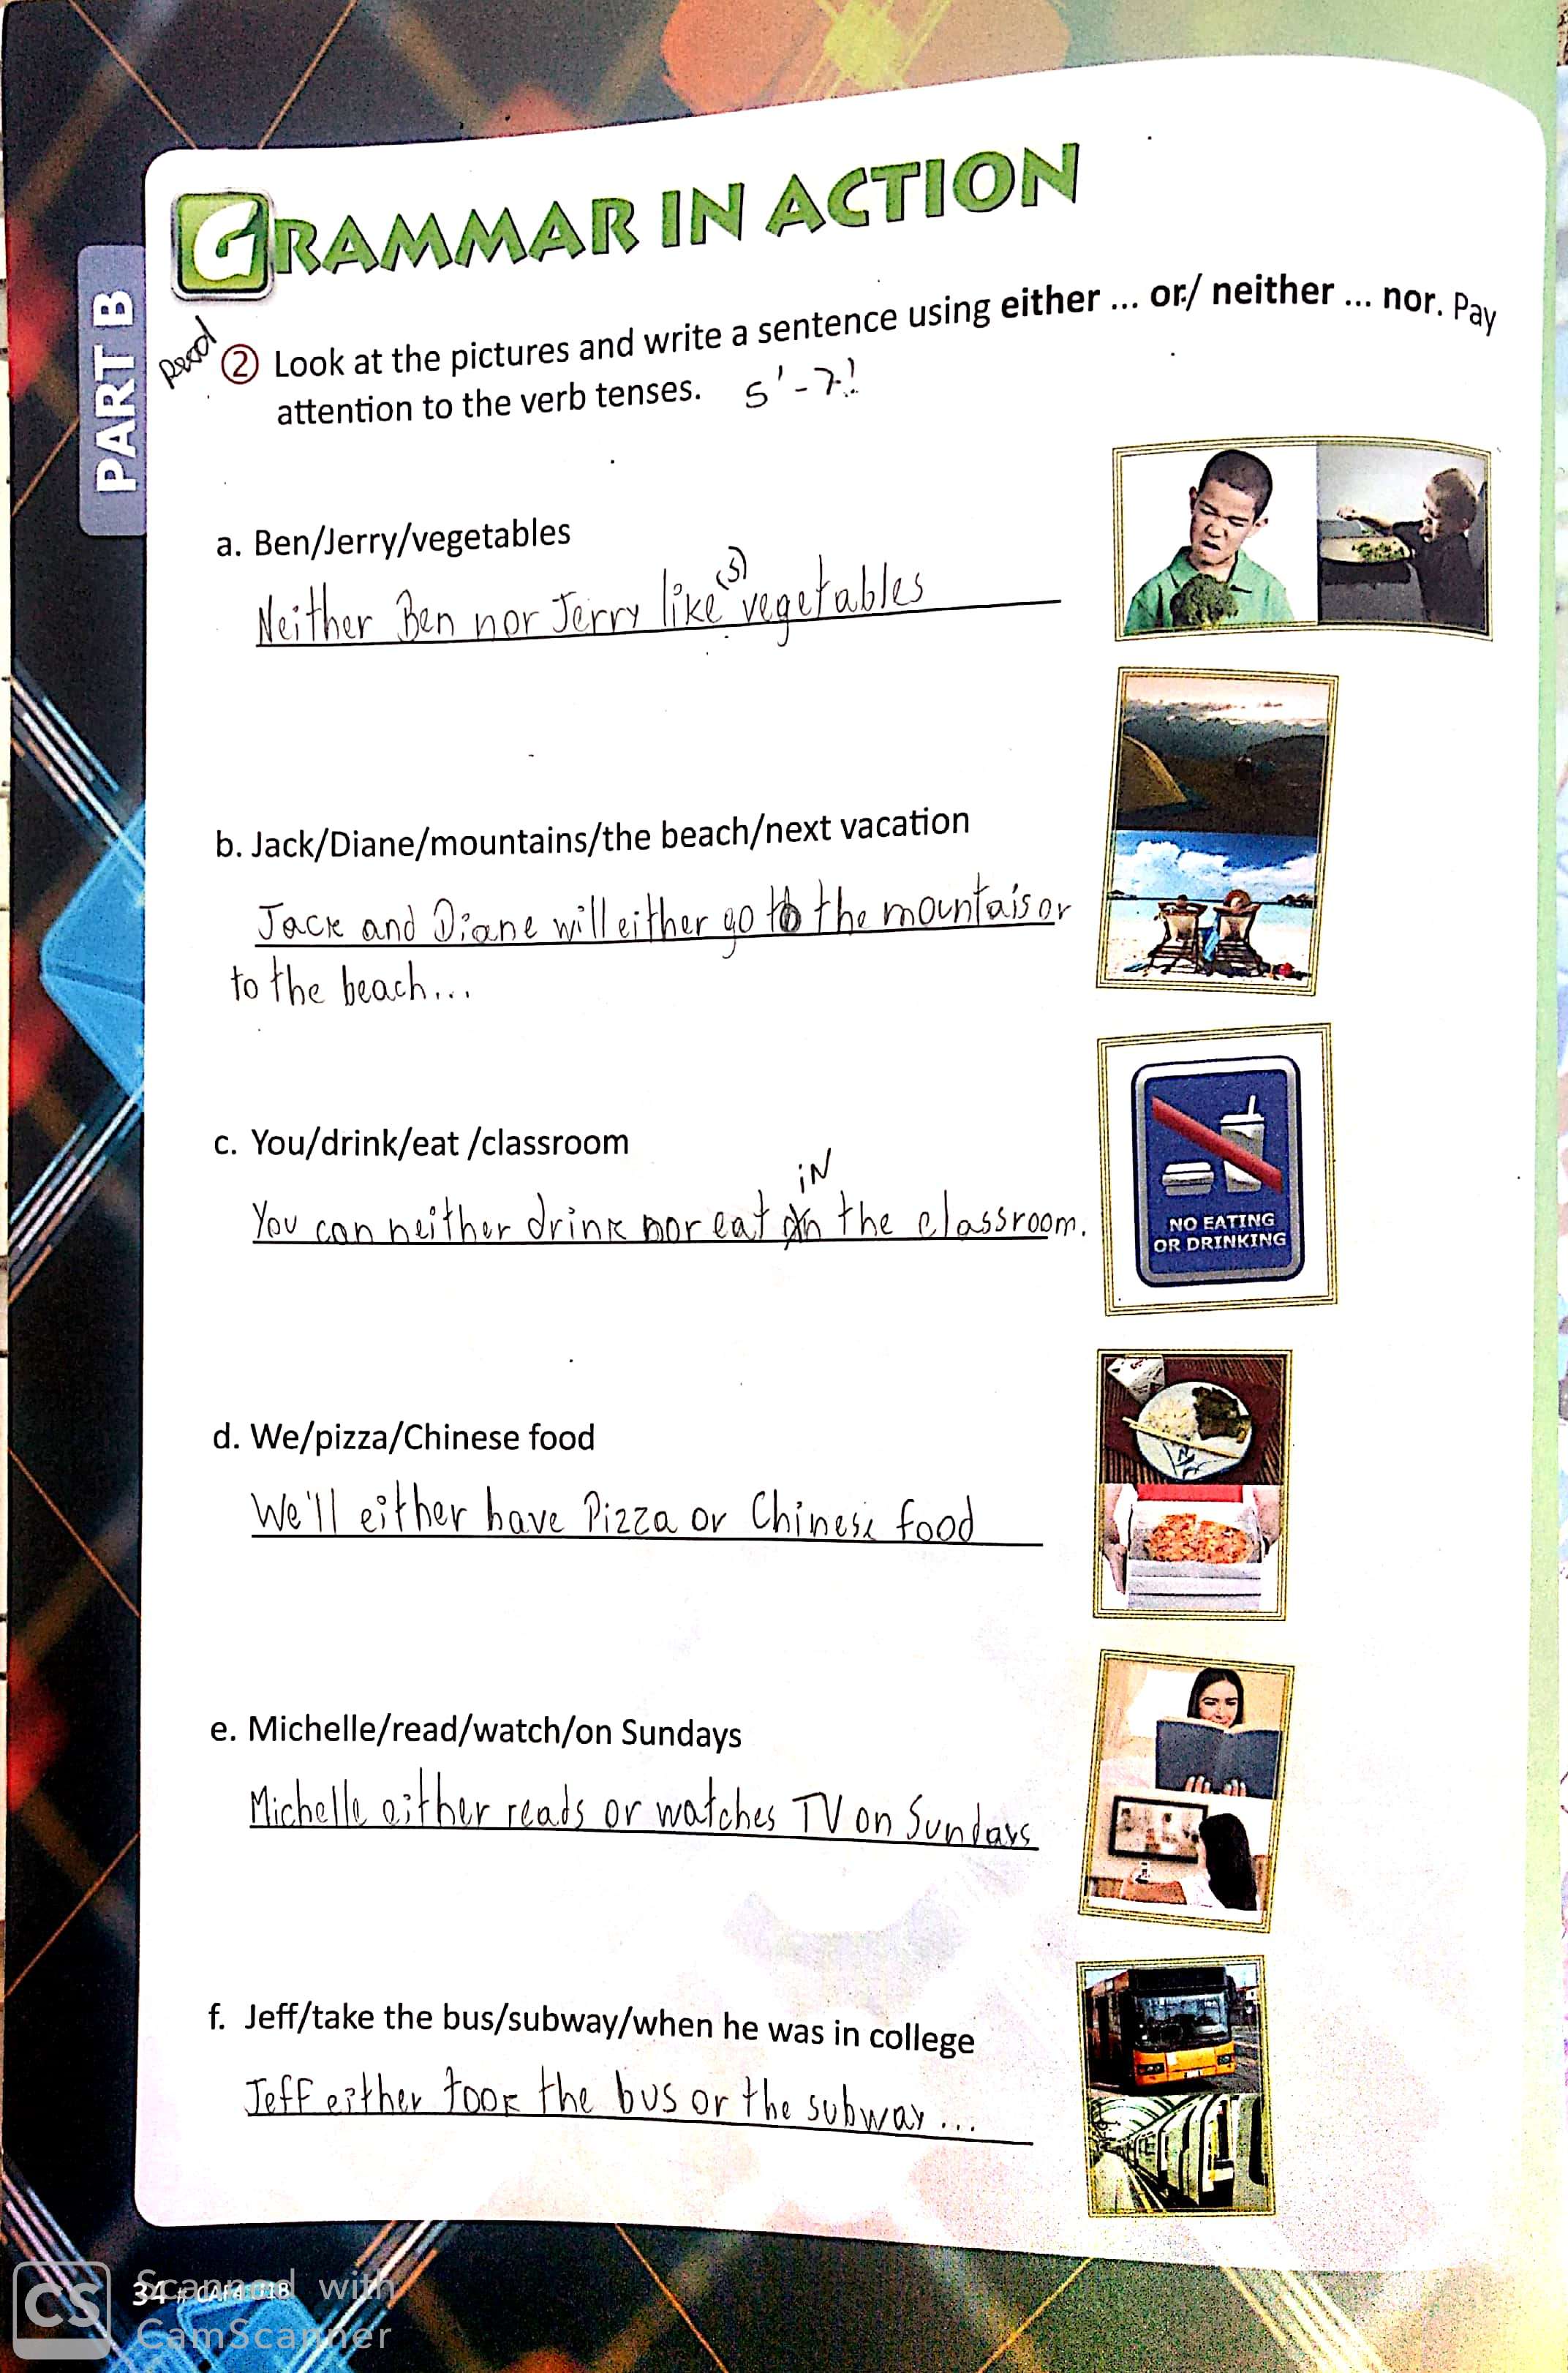 GRAMMAR IN ACTION
PART B
Read
② Look at the pictures and write a sentence using either ... or / neither ... nor. Pay
attention to the verb tenses. 5'-7!
a. Ben/Jerry/vegetables
(s)
Neither Ben nor Jerry like vegetables
b. Jack/Diane/mountains/the beach/next vacation
Jack and Diane will either go to the mountais or
to the beach...
c. You/drink/eat /classroom
in
You can neither drink nor eat on the classroom.
NO EATING
OR DRINKING
d. We/pizza/Chinese food
We'll either have Pizza or Chinese food
e. Michelle/read/watch/on Sundays
Michelle either reads or watches TV on Sundays
f. Jeff/take the bus/subway/when he was in college
Jeff either took the bus or the subway...
34
CS Scanned with
CamScanner